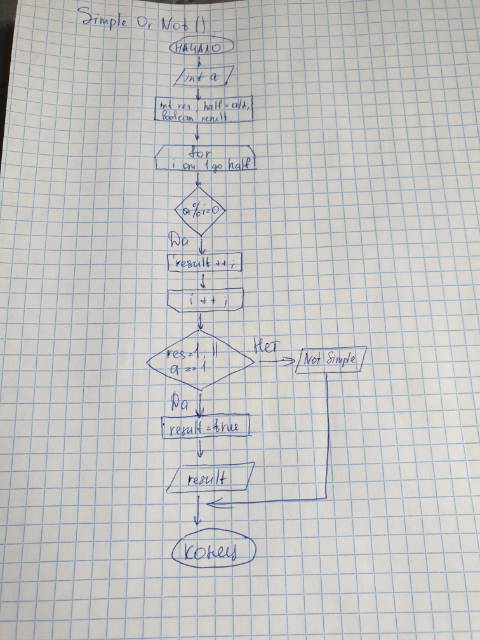 Simple Or Not ()
НАЧАЛО
int a
int res, half = a/2,
boolean result
for
i от 1 до half
a%i=0
Да
result ++;
i ++;
res=1, ||
a == 1
Нет
Not Simple
Да
result = true
result
конец